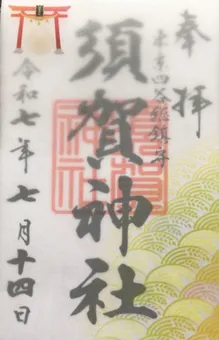 奉拝
東京四谷総鎮守
須賀神社
令和七年七月十四日